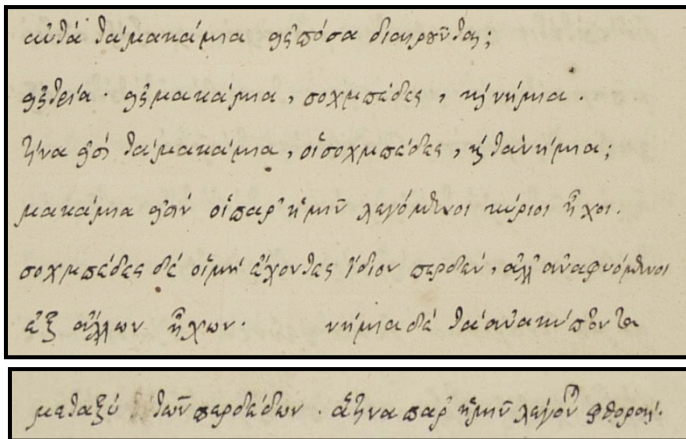 αὐτὰ τὰ μακάμια εἰς πόσα διαιροῦνται;
εἰς τρία· εἰς μακάμια, σοχμπέδες, κὶ νήμια.
τίνα εἰσὶ τὰ μακάμια, οἱ σοχμπέδες, κὶ τὰ νήμια;
μακάμια εἰσὶν οἱ παρ' ἡμῖν λεγόμενοι κύριοι ἦχοι.
σοχμπέδες δὲ οἱ μὴ ἔχοντες ἴδιον περδὲν, ἀλλ' ἀναφυόμενοι
ἐξ ἄλλων ἤχων· νήμια δὲ τὰ ἀνακύπτοντα
μεταξὺ τῶν περδέδων· ἅτινα παρ' ἡμῖν λέγονται φθοραί.